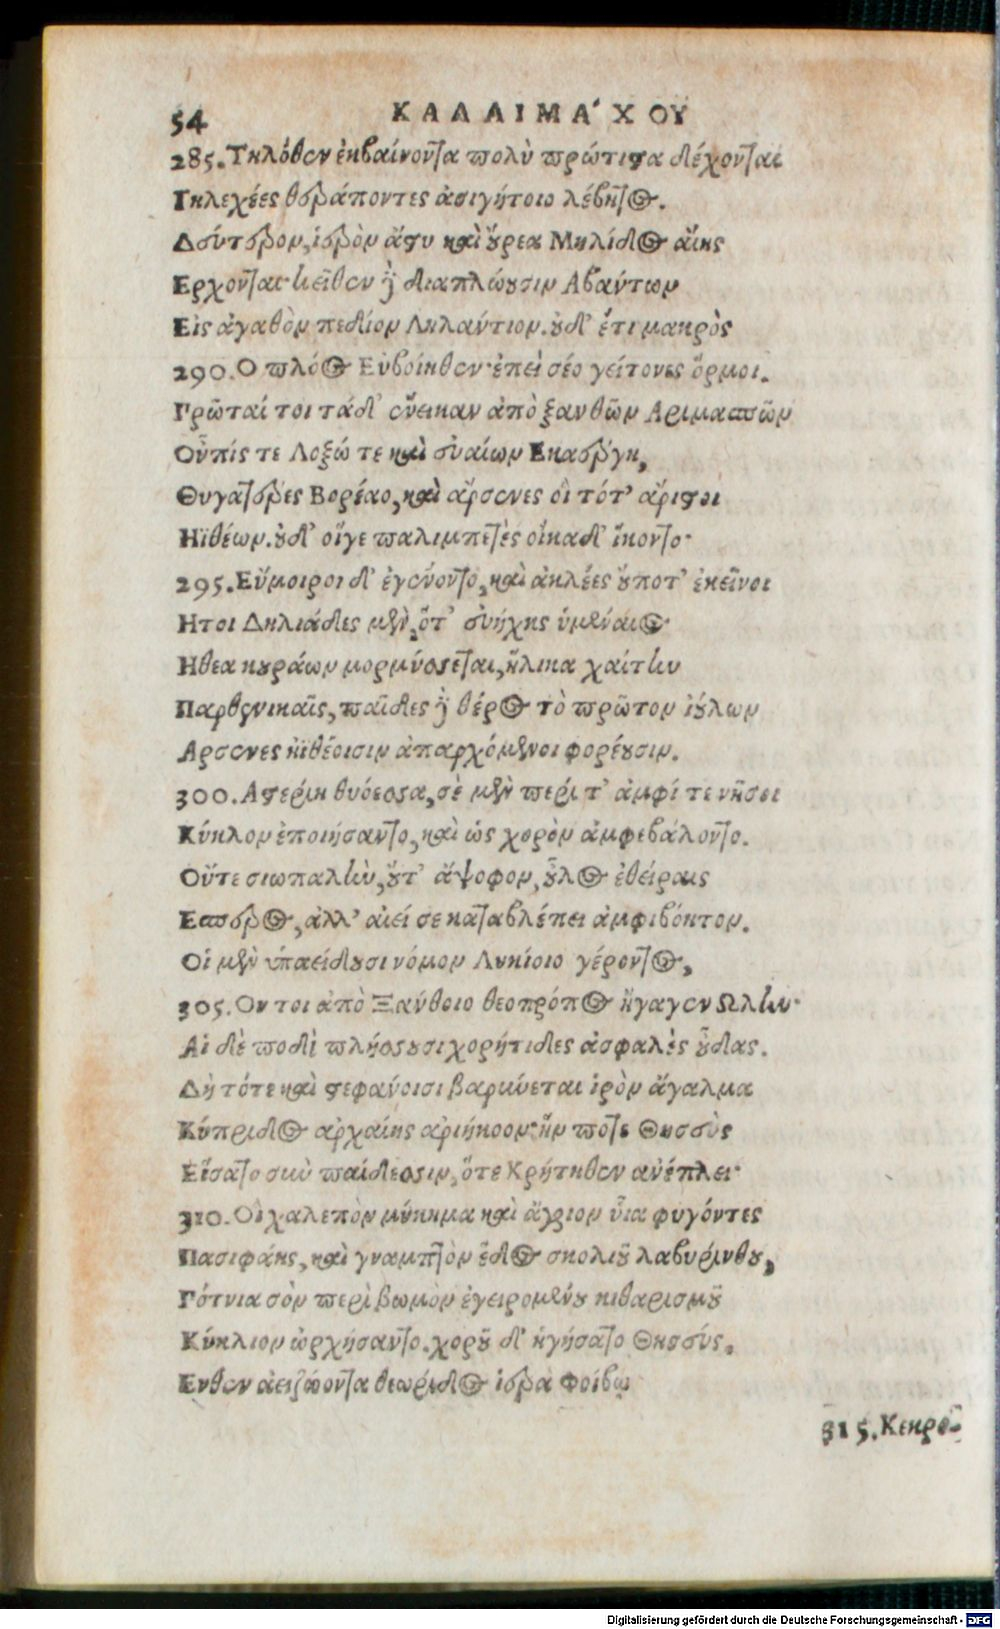 54 ΚΑΛΛΙΜΑ΄ΧΟΥ
285. Τηλόθεν ἐκβαίνοντα πολὺ πρώτιστα δέχονται
Γηλεχέες θεράποντες ἀσιγήτοιο λέβητος.
Δεύτερον, ἱερὸν ἄστυ καὶ ὔρεα Μηλίδος αἴης
Ερχονται· κεῖθεν δὲ διαπλώουσιν Αβαντων
Εἰς ἀγαθὸν πεδίον Ληλάντιον. οὐδ' ἔτι μακρὸς
290. Ο πλόος Εὐβοίηθεν· ἐπεὶ σέο γείτονες ὅρμοι.
Γρῶταί τοι τάδ' ἔνεικαν ἀπὸ ξανθῶν Αριμασπῶν
Οὖπίς τε Λοξώ τε καὶ εὐαίων Εκαέργη,
Θυγατέρες Βορέαο, καὶ ἄρσενες οἱ τότ' ἄριστοι
Ηϊθέων. οὐδ' οἵγε παλιμπετὲς οἴκαδ' ἵκοντο·
295. Εὔμοιροι δ' ἐγένοντο, καὶ ἀκλέες οὔποτ' ἐκεῖνοι
Ητοι Δηλιάδες μὲν, ὅτ' εὐήχης ὑμέναιος
Ηθεα κουράων μορμύσσεται, ἥλικα χαίτην
Παρθενικαῖς, παῖδες δὲ θέρος τὸ πρῶτον ἰούλων
Αρσενες ἠϊθέοισιν ἀπαρχόμενοι φορέουσιν.
300. Αστερίη θυόεσσα, σὲ μὲν περί τ' ἀμφί τε νῆσοι
Κύκλον ἐποιήσαντο, καὶ ὡς χορὸν ἀμφεβάλοντο.
Οὔτε σιωπηλὴν, οὔτ' ἄψοφον, οὖλος ἐθείραις
Εσπερος, ἀλλ' αἰεί σε καταβλέπει ἀμφιβόητον.
Οἱ μὲν ὑπαείδουσι νόμον Λυκίοιο γέροντος,
305. Ον τοι ἀπὸ Ξάνθοιο θεοπρόπος ἤγαγεν Ωλήν·
Αἱ δὲ ποδὶ πλήσσουσι χορήτιδες ἀσφαλὲς οὖδας.
Δὴ τότε καὶ στεφάνοισι βαρύνεται ἱρὸν ἄγαλμα
Κύπριδος ἀρχαίης ἀριήκοον· ἥν ποτε Θησεὺς
Εἵσατο σὺν παίδεσσιν, ὅτε Κρήτηθεν ἀνέπλει·
310. Οἳ χαλεπὸν μύκημα καὶ ἄγριον υἷα φυγόντες
Πασιφάης, καὶ γναμπτὸν ἕδος σκολιοῦ λαβυρίνθου,
Γότνια σὸν περὶ βωμὸν ἐγειρομένου κιθαρισμοῦ
Κύκλιον ὠρχήσαντο. χοροῦ δ' ἡγήσατο Θησεύς.
Ενθεν ἀειζώοντα θεωρίδος ἱερὰ Φοίβῳ
315. Κεκρο-
Digitalisierung gefördert durch die Deutsche Forschungsgemeinschaft - DFG